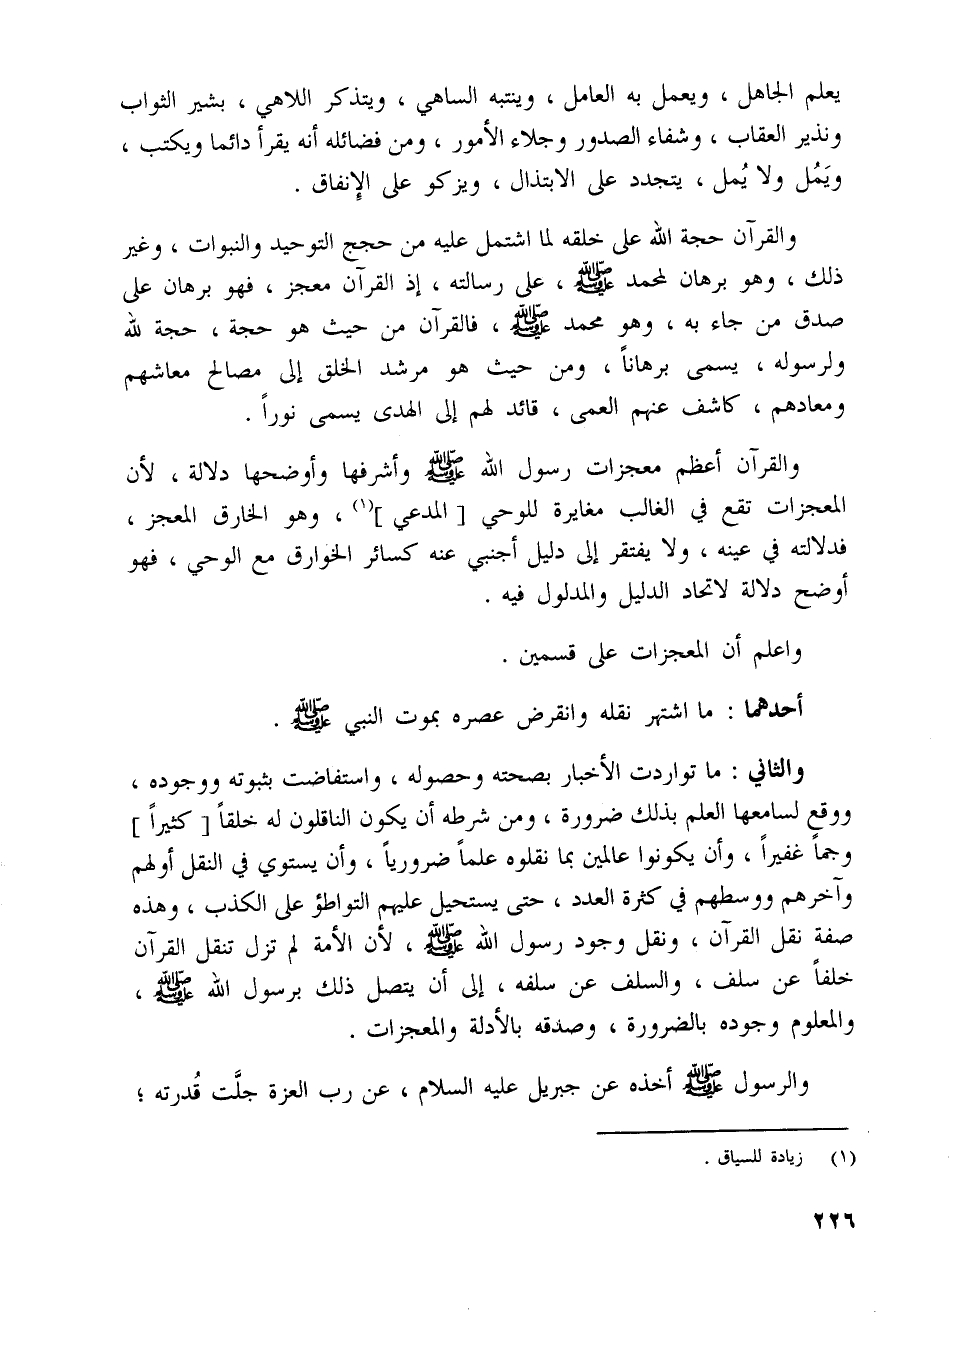 يعلم الجاهل ، ويعمل به العامل ، وينتبه الساهي ، ويتذكر اللاهي ، بشير الثواب
ونذير العقاب ، وشفاء الصدور وجلاء الأمور ، ومن فضائله أنه يقرأ دائما ويكتب ،
ويَمُل ولا يُمل ، يتجدد على الابتذال ، ويزكو على الإنفاق .
والقرآن حجة الله على خلقه لما اشتمل عليه من حجج التوحيد والنبوات ، وغير
ذلك ، وهو برهان لمحمد ﷺ ، على رسالته ، إذ القرآن معجز ، فهو برهان على
صدق من جاء به ، وهو محمد ﷺ ، فالقرآن من حيث هو حجة ، حجة لله
ولرسوله ، يسمى برهاناً ، ومن حيث هو مرشد الخلق إلى مصالح معاشهم
ومعادهم ، كاشف عنهم العمى ، قائد لهم إلى الهدى يسمى نوراً .
والقرآن أعظم معجزات رسول الله ﷺ وأشرفها وأوضحها دلالة ، لأن
المعجزات تقع في الغالب مغايرة للوحي [ المدعي ](١) ، وهو الخارق المعجز ،
فدلالته في عينه ، ولا يفتقر إلى دليل أجنبي عنه كسائر الخوارق مع الوحي ، فهو
أوضح دلالة لاتحاد الدليل والمدلول فيه .
واعلم أن المعجزات على قسمين .
أحدهما : ما اشتهر نقله وانقرض عصره بموت النبي ﷺ .
والثاني : ما تواردت الأخبار بصحته وحصوله ، واستفاضت بثبوته ووجوده ،
ووقع لسامعها العلم بذلك ضرورة ، ومن شرطه أن يكون الناقلون له خلقاً [ كثيراً ]
وجماً غفيراً ، وأن يكونوا عالمين بما نقلوه علماً ضرورياً ، وأن يستوي في النقل أولهم
وآخرهم ووسطهم في كثرة العدد ، حتى يستحيل عليهم التواطؤ على الكذب ، وهذه
صفة نقل القرآن ، ونقل وجود رسول الله ﷺ ، لأن الأمة لم تزل تنقل القرآن
خلفاً عن سلف ، والسلف عن سلفه ، إلى أن يتصل ذلك برسول الله ﷺ ،
والمعلوم وجوده بالضرورة ، وصدقه بالأدلة والمعجزات .
والرسول ﷺ أخذه عن جبريل عليه السلام ، عن رب العزة جلَّت قُدرته ؛
(١) زيادة للسياق .
٢٢٦